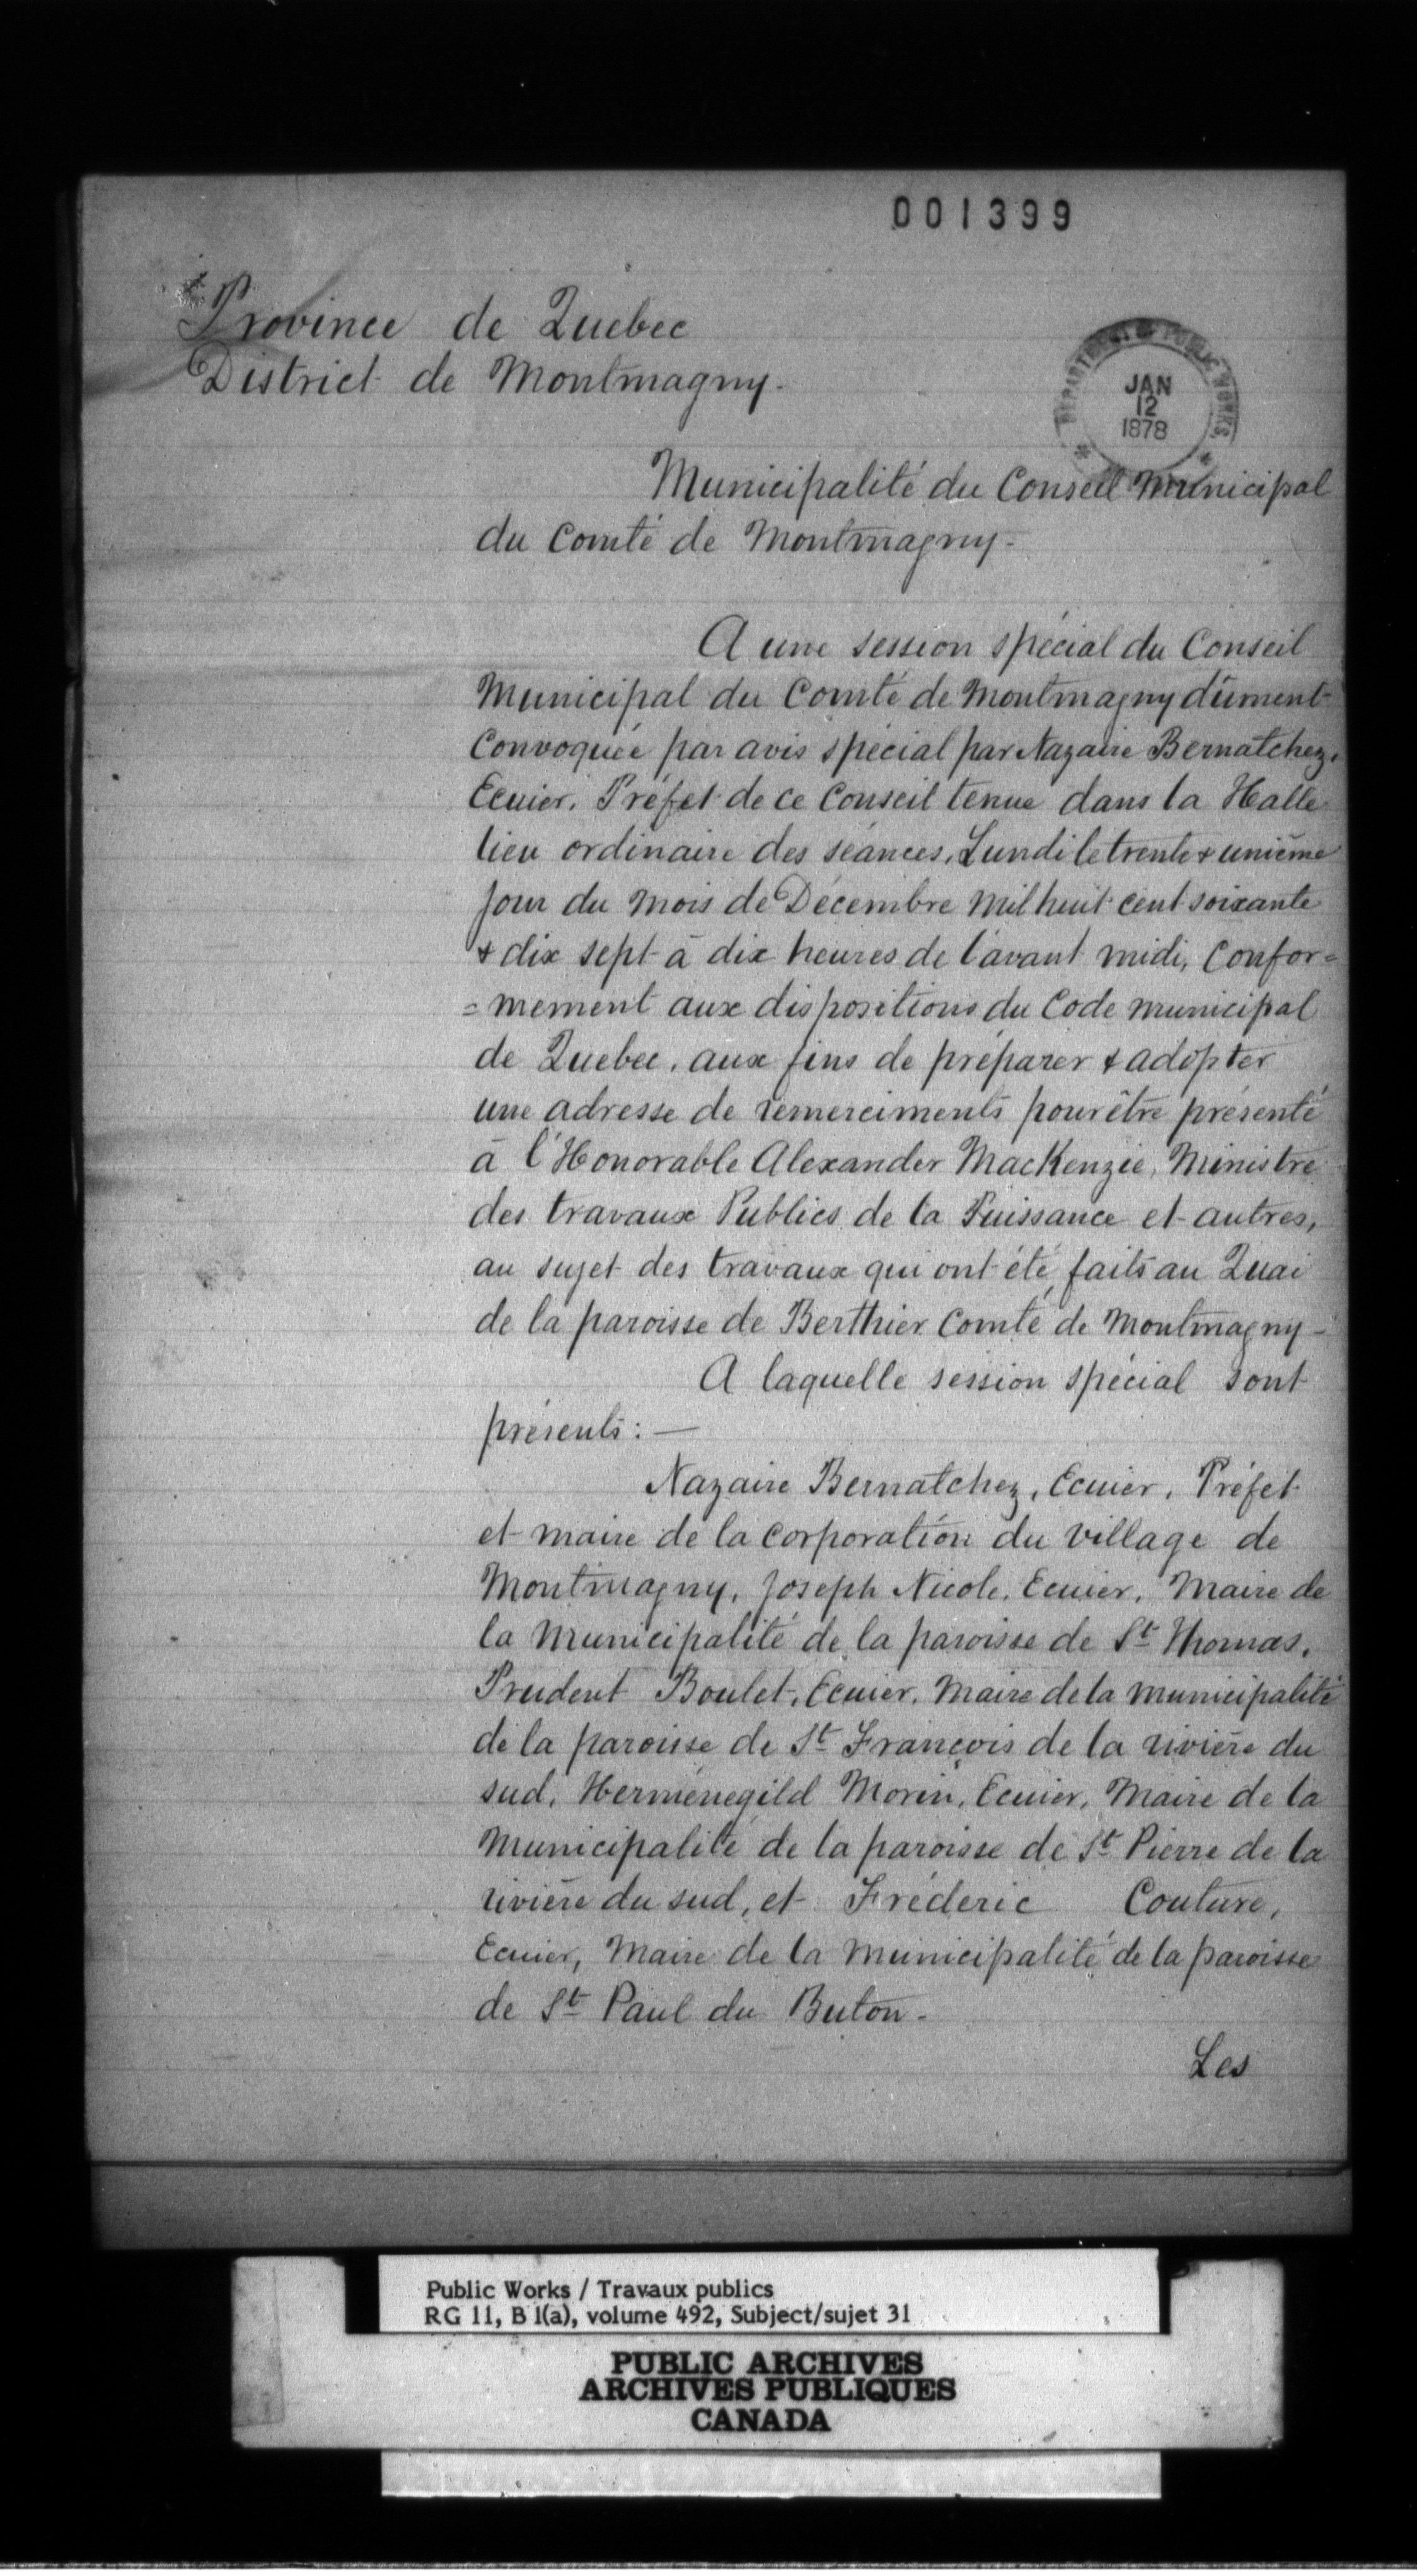 001399
Province de Quebec
District de Montmagny.
DEPARTMENT OF PUBLIC WORKS
JAN
12
1878
Municipalité du Conseil Municipal
du Comté de Montmagny-
A une session spécial du Conseil
Municipal du Comté de Montmagny dûment
Convoquée par avis spécial par Nazaire Bernatchez,
Ecuier, Préfet de ce Conseil tenue dans la Halle
lieu ordinaire des séances, Lundi le trente & unième
jour du mois de Décembre mil huit cent soixante
& dix sept à dix heures de l'avant midi, Confor=
=mement aux dispositions du Code municipal
de Quebec, aux fins de préparer & adopter
une adresse de remerciments pour être présenté
à l'Honorable Alexander MacKenzie, Ministre
des travaux Publics de la Puissance et autres,
au sujet des travaux qui ont été faits au Quai
de la paroisse de Berthier Comté de Montmagny-
A laquelle session spécial sont
présents:—
Nazaire Bernatchez, Ecuier, Préfet
et maire de la corporation du village de
Montmagny, Joseph Nicole, Ecuier, Maire de
la Municipalité de la paroisse de St Thomas,
Prudent Boulet, Ecuier, Maire de la municipalité
de la paroisse de St François de la rivière du
sud, Herménegild Morin, Ecuier, Maire de la
Municipalité de la paroisse de St Pierre de la
rivière du sud, et Fréderic Couture,
Ecuier, Maire de la Municipalité de la paroisse
de St Paul du Buton-
Les
Public Works / Travaux publics
RG 11, B 1(a), volume 492, Subject/sujet 31
PUBLIC ARCHIVES
ARCHIVES PUBLIQUES
CANADA